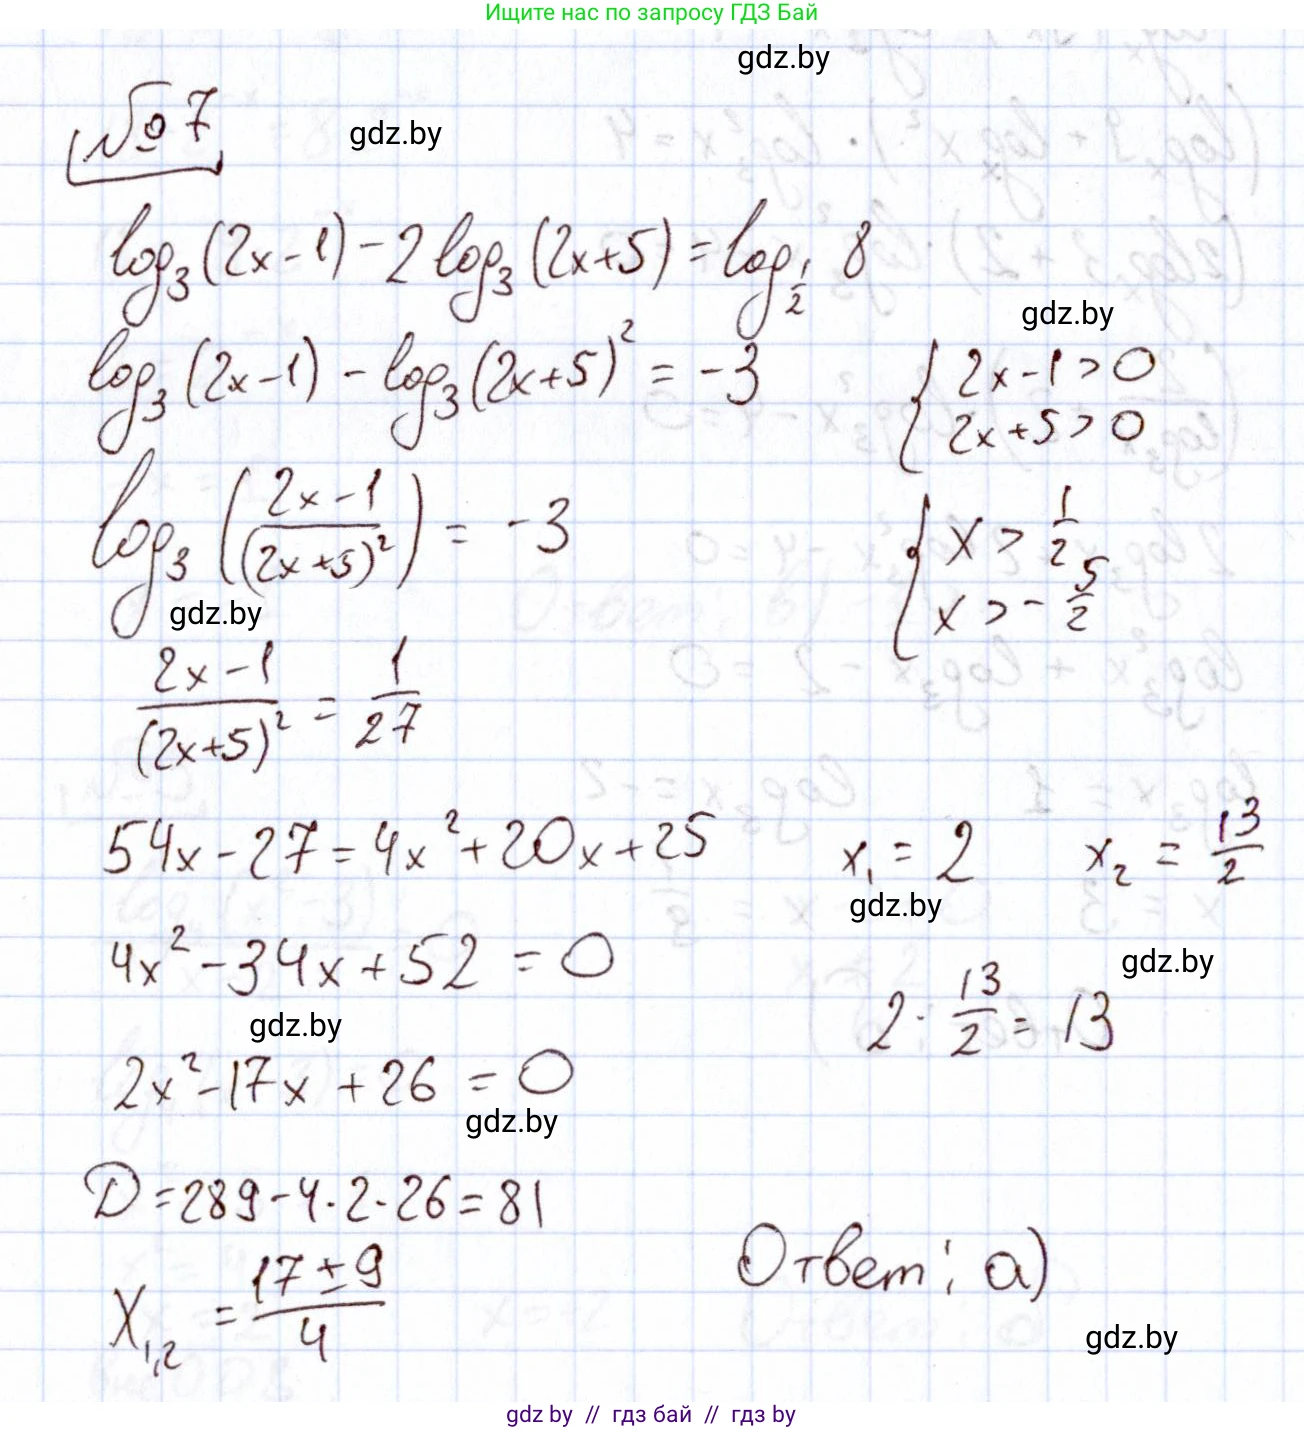 Ищите нас по запросу ГДЗ Бай
gdz.by
№7
gdz.by
log₃(2x-1) - 2log₃(2x+5) = log_{1/2} 8
gdz.by
log₃(2x-1) - log₃(2x+5)² = -3
{ 2x-1>0
2x+5>0
log₃((2x-1)/(2x+5)²) = -3
{ x > 1/2
x > -5/2
gdz.by
(2x-1)/(2x+5)² = 1/27
54x - 27 = 4x² + 20x + 25
x₁ = 2 x₂ = 13/2
gdz.by
4x² - 34x + 52 = 0
gdz.by
2 · 13/2 = 13
gdz.by
2x² - 17x + 26 = 0
gdz.by
D = 289 - 4·2·26 = 81
x₁,₂ = (17±9)/4
Ответ: а)
gdz.by
gdz by // гдз бай // гдз by